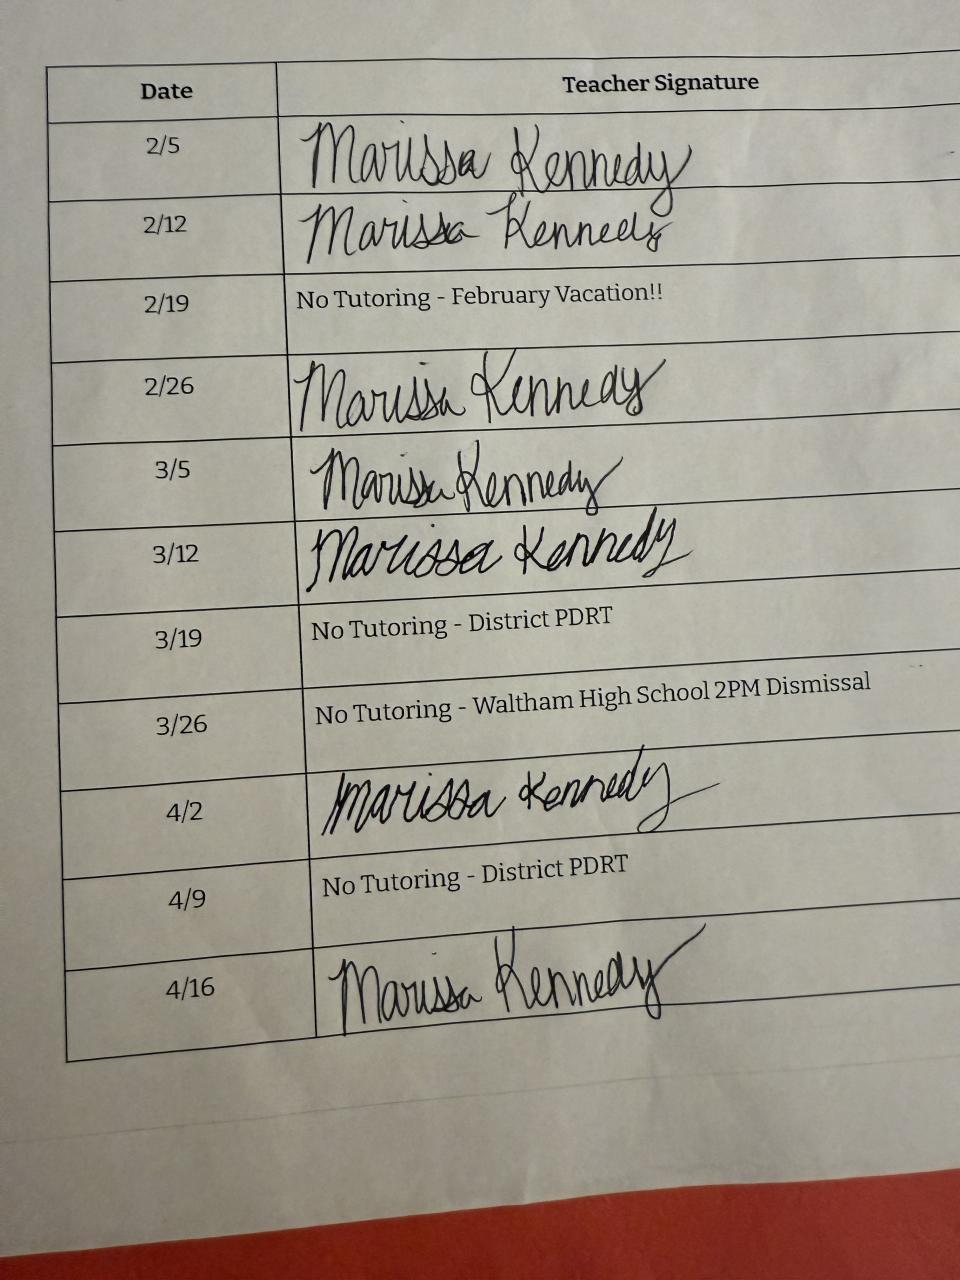 Date Teacher Signature
2/5 Marissa Kennedy
2/12 Marissa Kennedy
2/19 No Tutoring - February Vacation!!
2/26 Marissa Kennedy
3/5 Marissa Kennedy
3/12 Marissa Kennedy
3/19 No Tutoring - District PDRT
3/26 No Tutoring - Waltham High School 2PM Dismissal
4/2 Marissa Kennedy
4/9 No Tutoring - District PDRT
4/16 Marissa Kennedy